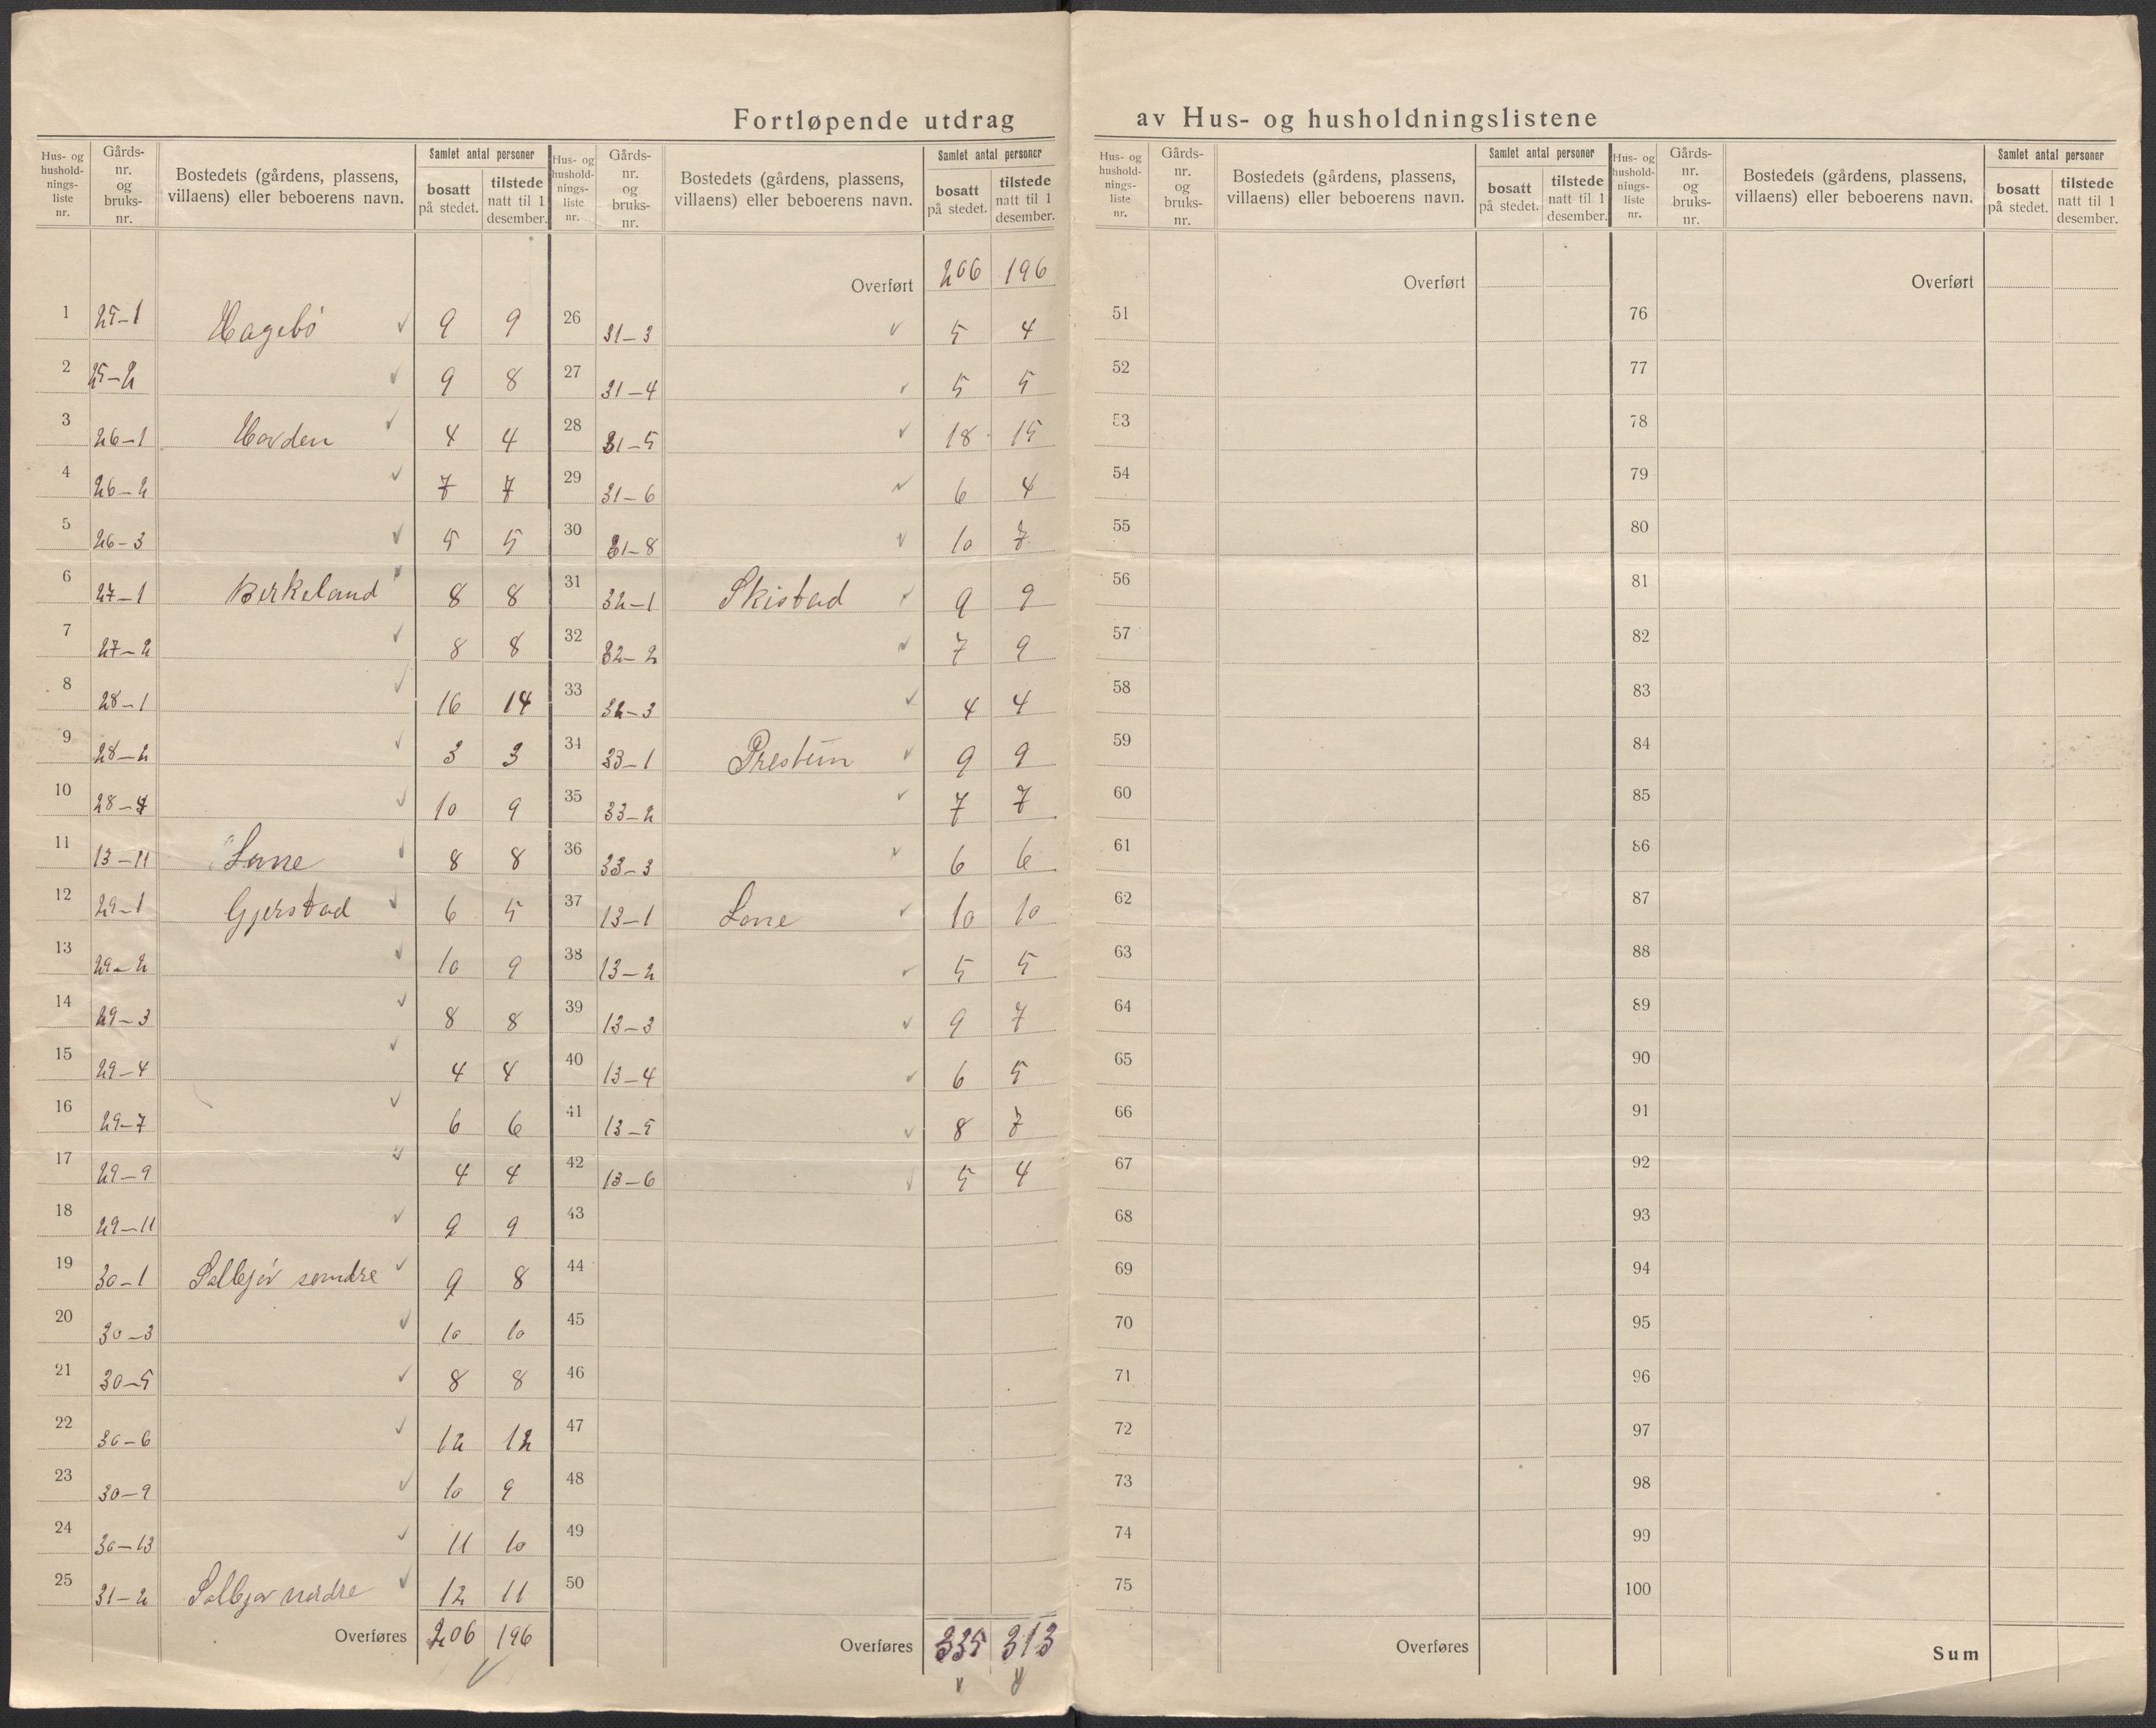 Fortløpende utdrag av Hus- og husholdningslistene
Hus- og hushold-nings-liste nr. Gårds-nr. og bruks-nr. Bostedets (gårdens, plassens, villaens) eller beboerens navn. Samlet antal personer bosatt på stedet. tilstede natt til 1 desember.
1 25-1 Hagebö 9 9
2 25-2 9 8
3 26-1 Hovden 4 4
4 26-2 7 7
5 26-3 5 5
6 27-1 Birkeland 8 8
7 27-2 8 8
8 28-1 16 14
9 28-2 3 3
10 28-4 10 9
11 13-11 Lone 8 8
12 29-1 Gjerstad 6 5
13 29-2 10 9
14 29-3 8 8
15 29-4 4 4
16 29-7 6 6
17 29-9 4 4
18 29-11 9 9
19 30-1 Solbjör söndre 9 8
20 30-3 10 10
21 30-5 8 8
22 30-6 12 12
23 30-9 10 9
24 30-13 11 10
25 31-2 Solbjor nordre 12 11
Overføres 206 196
Hus- og hushold-nings-liste nr. Gårds-nr. og bruks-nr. Bostedets (gårdens, plassens, villaens) eller beboerens navn. Samlet antal personer bosatt på stedet. tilstede natt til 1 desember.
Overført 206 196
26 31-3 5 4
27 31-4 5 5
28 31-5 18 15
29 31-6 6 4
30 31-8 10 7
31 32-1 Skistad 9 9
32 32-2 7 9
33 32-3 4 4
34 33-1 Prestun 9 9
35 33-2 7 7
36 33-3 6 6
37 13-1 Lone 10 10
38 13-2 5 5
39 13-3 9 7
40 13-4 6 5
41 13-5 8 7
42 13-6 5 4
43
44
45
46
47
48
49
50
Overføres 335 313
Hus- og hushold-nings-liste nr. Gårds-nr. og bruks-nr. Bostedets (gårdens, plassens, villaens) eller beboerens navn. Samlet antal personer bosatt på stedet. tilstede natt til 1 desember.
Overført
51
52
53
54
55
56
57
58
59
60
61
62
63
64
65
66
67
68
69
70
71
72
73
74
75
Overføres
Hus- og hushold-nings-liste nr. Gårds-nr. og bruks-nr. Bostedets (gårdens, plassens, villaens) eller beboerens navn. Samlet antal personer bosatt på stedet. tilstede natt til 1 desember.
Overført
76
77
78
79
80
81
82
83
84
85
86
87
88
89
90
91
92
93
94
95
96
97
98
99
100
Sum